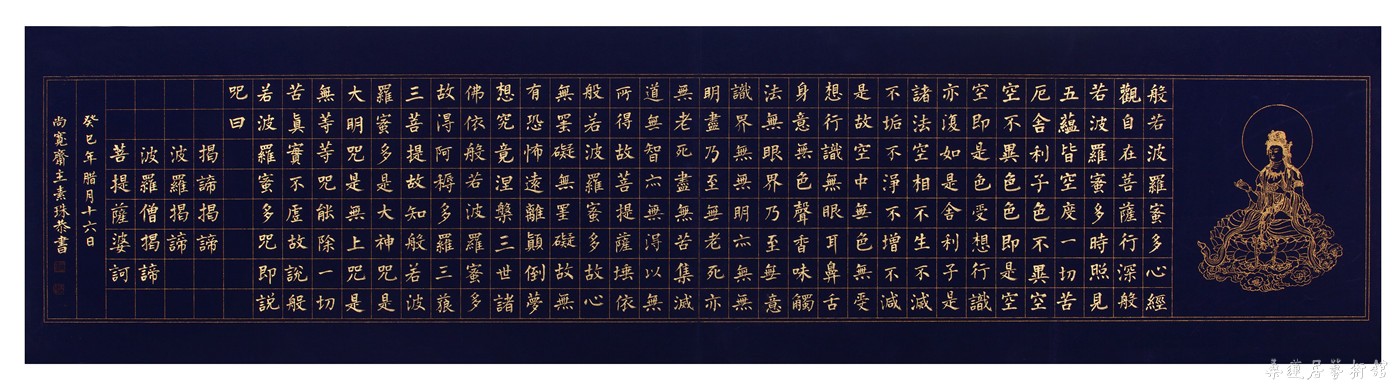 般若波羅蜜多心經
觀自在菩薩行深般
若波羅蜜多時照見
五蘊皆空度一切苦
厄舍利子色不異空
空不異色色即是空
空即是色受想行識
亦復如是舍利子是
諸法空相不生不滅
不垢不淨不增不減
是故空中無色無受
想行識無眼耳鼻舌
身意無色聲香味觸
法無眼界乃至無意
識界無無明亦無無
明盡乃至無老死亦
無老死盡無苦集滅
道無智亦無得以無
所得故菩提薩埵依
般若波羅蜜多故心
無罣礙無罣礙故無
有恐怖遠離顛倒夢
想究竟涅槃三世諸
佛依般若波羅蜜多
故得阿耨多羅三藐
三菩提故知般若波
羅蜜多是大神呪是
大明呪是無上呪是
無等等呪能除一切
苦真實不虛故說般
若波羅蜜多呪即說
呪曰
揭諦揭諦
波羅揭諦
波羅僧揭諦
菩提薩婆訶
癸巳年腊月十六日
尚寬齋主素珠恭書
桑蓮居藝術館